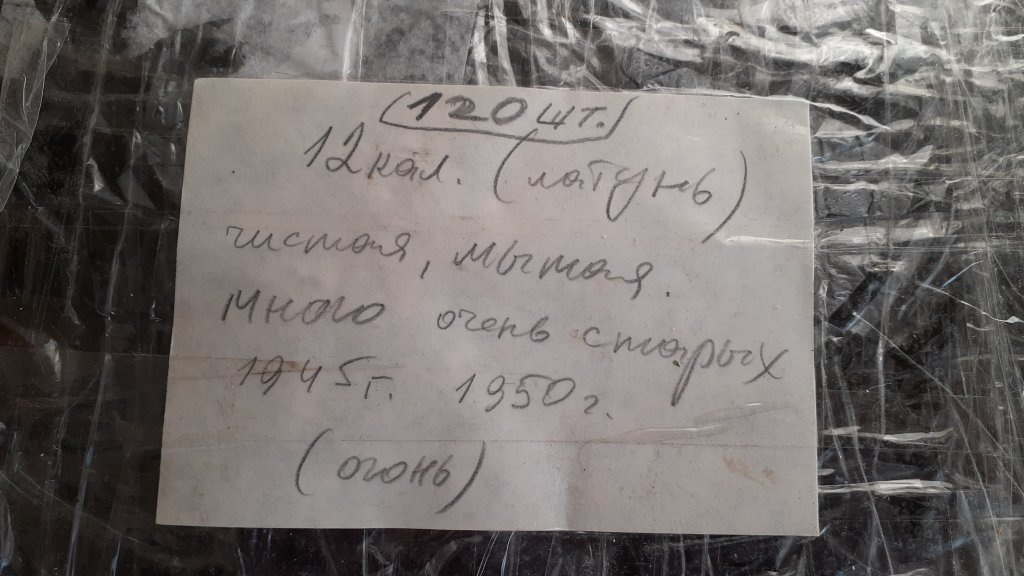 (120 шт.)
12 кал. (латунь)
чистая, мытая.
много очень старых
1945г. 1950г.
(огонь)